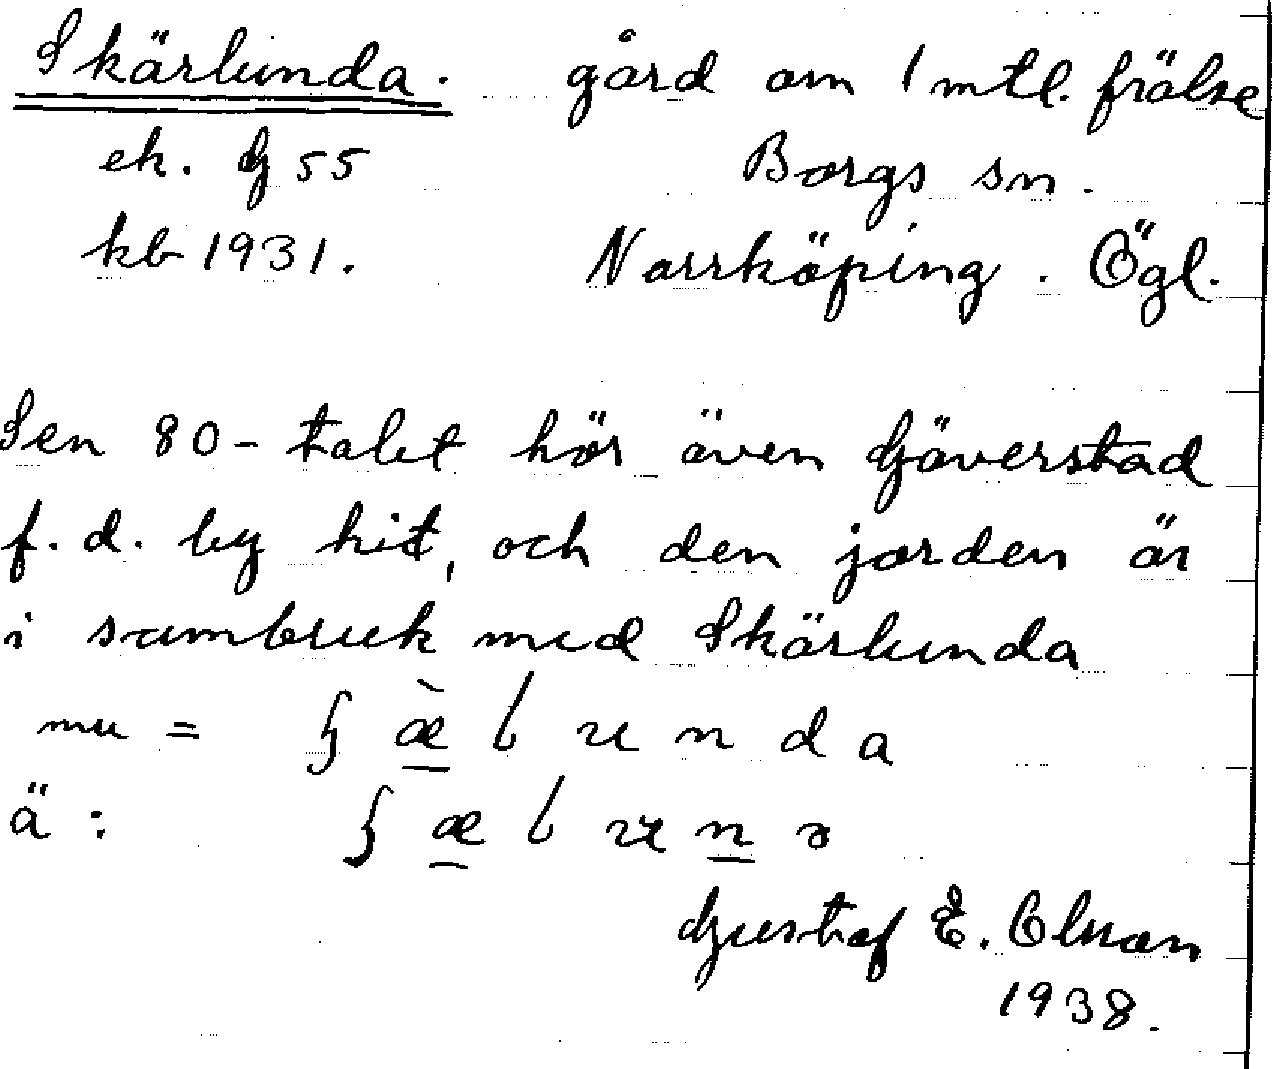 Skärlunda. gård om 1 mtl. frälse
ek. G 55 Borgs sn.
kb 1931. Norrköping. Ögl.
Sen 80-talet hör även Gäverstad
f. d. by hit, och den jorden är
i sambruk med Skärlunda
mu = ʃ æ̀ l u n d a
ä: ʃ æ l u n ɔ
Gustaf E. Olsson
1938.